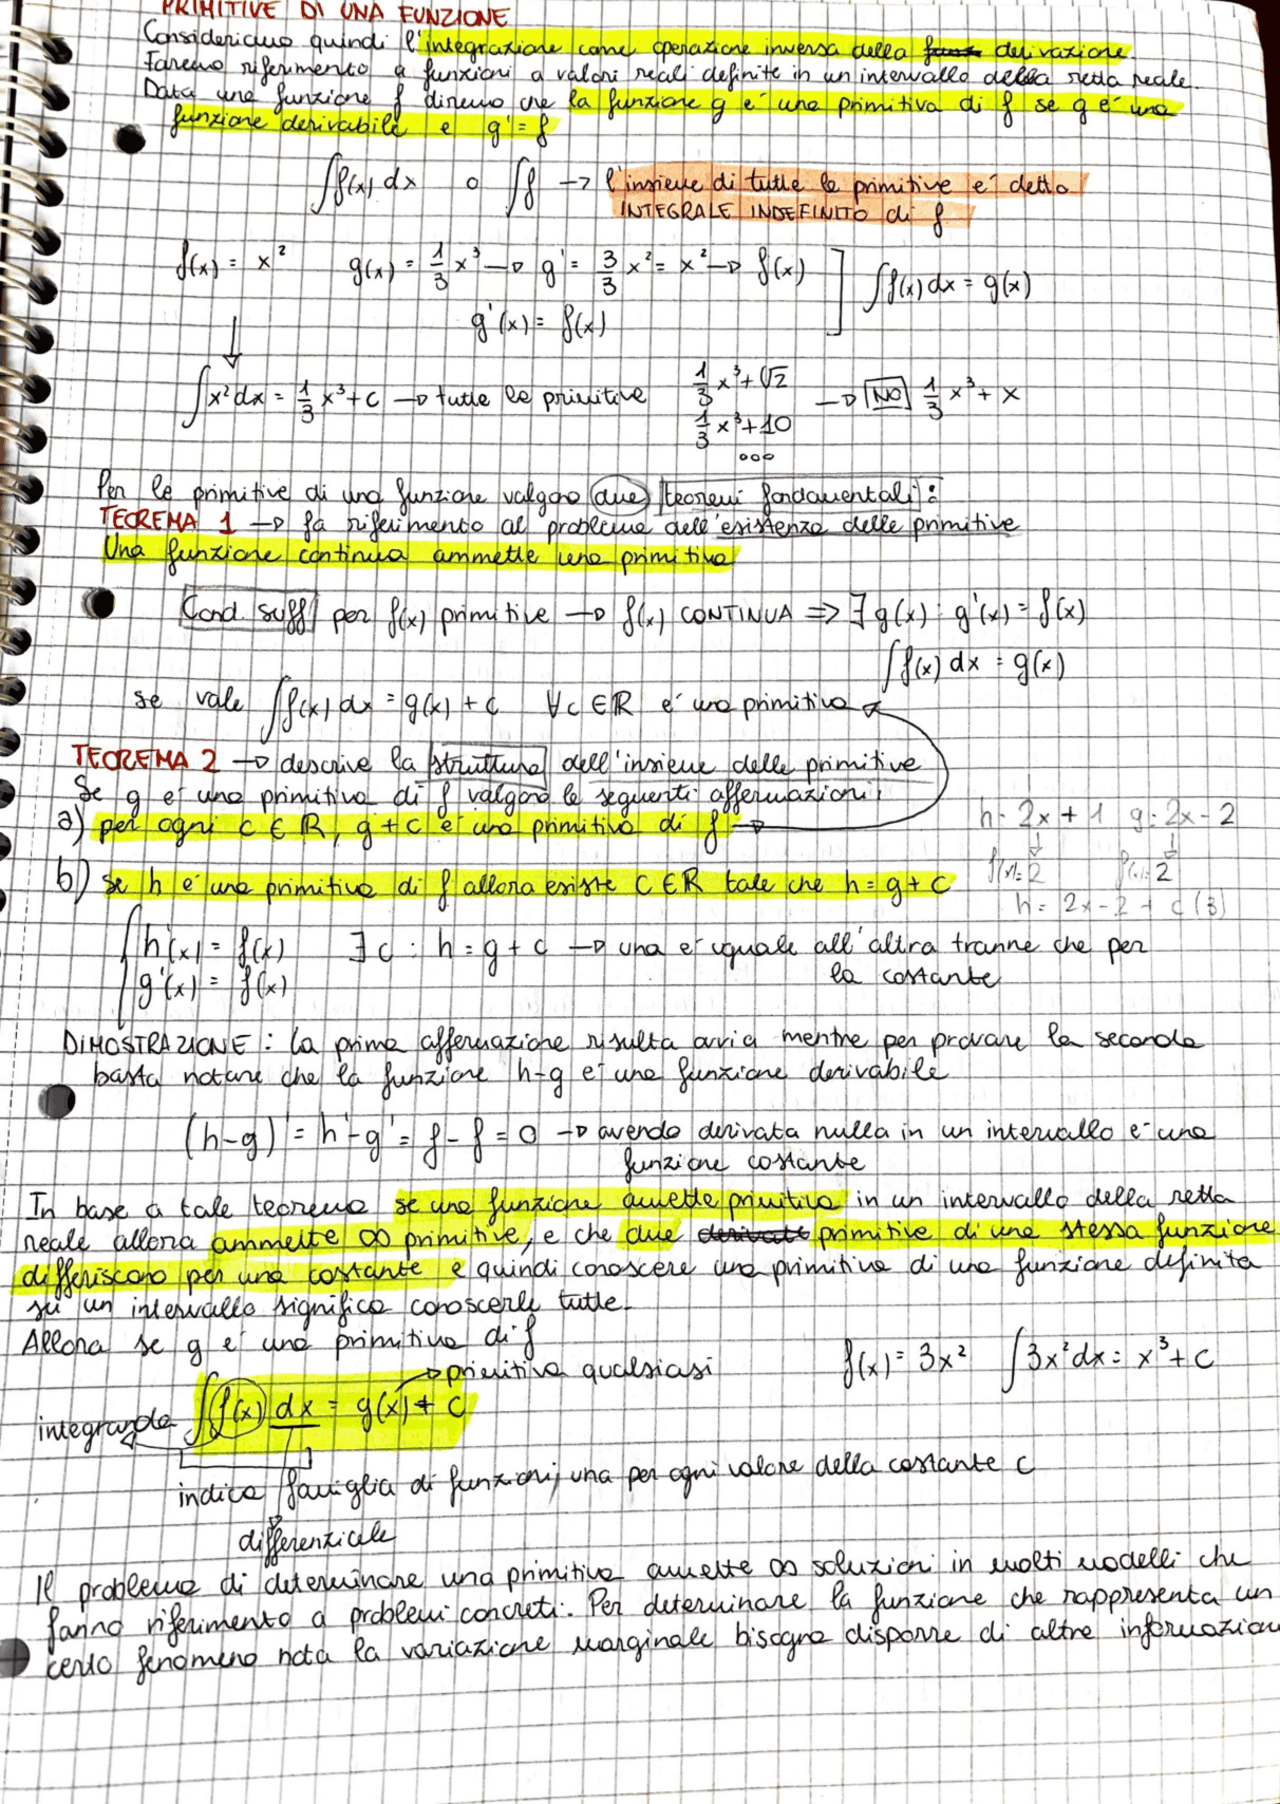 PRIMITIVE DI UNA FUNZIONE
Consideriamo quindi l'integrazione come operazione inversa della derivazione.
Faremo riferimento a funzioni a valori reali definite in un intervallo della retta reale.
Data una funzione f diremo che la funzione g e' una primitiva di f se g e' una
funzione derivabile e g' = f
∫f(x) dx o ∫f → l'insieme di tutte le primitive e' detto
INTEGRALE INDEFINITO di f
f(x) = x² g(x) = 1/3 x³ → g' = 3/3 x² = x² → f(x) ] ∫f(x) dx = g(x)
g'(x) = f(x)
↓
∫x² dx = 1/3 x³ + c → tutte le primitive 1/3 x³ + √2 → NO 1/3 x³ + x
1/3 x³ + 10
ooo
Per le primitive di una funzione valgono due teoremi fondamentali:
TEOREMA 1 → fa riferimento al problema dell'esistenza delle primitive
Una funzione continua ammette una primitiva
Cond. suff per f(x) primitive → f(x) CONTINUA ⇒ ∃ g(x) : g'(x) = f(x)
∫f(x) dx = g(x)
se vale ∫f(x) dx = g(x) + c ∀c ∈ R e' una primitiva
TEOREMA 2 → descrive la struttura dell'insieme delle primitive
Se g e' una primitiva di f valgono le seguenti affermazioni:
a) per ogni c ∈ R, g + c e' una primitiva di f →
h: 2x + 1 g: 2x - 2
b) se h e' una primitiva di f allora esiste c ∈ R tale che h = g + c
f(x)= 2 f(x)= 2
h = 2x - 2 + c (3)
h'(x) = f(x) ∃ c : h = g + c → una e' uguale all'altra tranne che per
g'(x) = f(x) la costante
DIMOSTRAZIONE : la prima affermazione risulta ovvia mentre per provare la seconda
basta notare che la funzione h-g e' una funzione derivabile
(h-g)' = h' - g' = f - f = 0 → avendo derivata nulla in un intervallo e' una
funzione costante
In base a tale teorema se una funzione ammette primitiva in un intervallo della retta
reale allora ammette ∞ primitive, e che due derivate primitive di una stessa funzione
differiscono per una costante e quindi conoscere una primitiva di una funzione definita
su un intervallo significa conoscerle tutte.
Allora se g e' una primitiva di f
f(x) = 3x² ∫3x² dx = x³ + c
→ primitiva qualsiasi
integranda ∫f(x) dx = g(x) + c
indica famiglia di funzioni, una per ogni valore della costante c
differenziale
Il problema di determinare una primitiva ammette ∞ soluzioni in molti modelli che
fanno riferimento a problemi concreti. Per determinare la funzione che rappresenta un
certo fenomeno nota la variazione marginale bisogna disporre di altre informazion